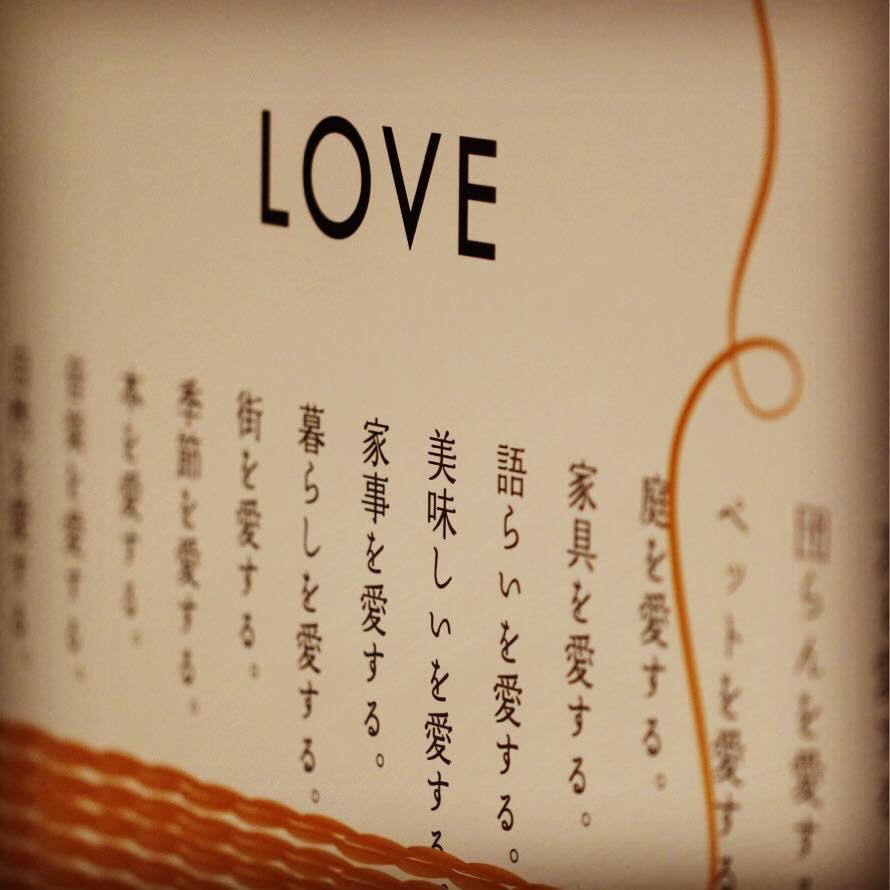 LOVE
団らんを愛す
ペットを愛する
庭を愛する。
家具を愛する。
語らいを愛する。
美味しいを愛する
家事を愛する。
暮らしを愛する。
街を愛する。
季節を愛する。
本を愛する。
音楽を愛する。